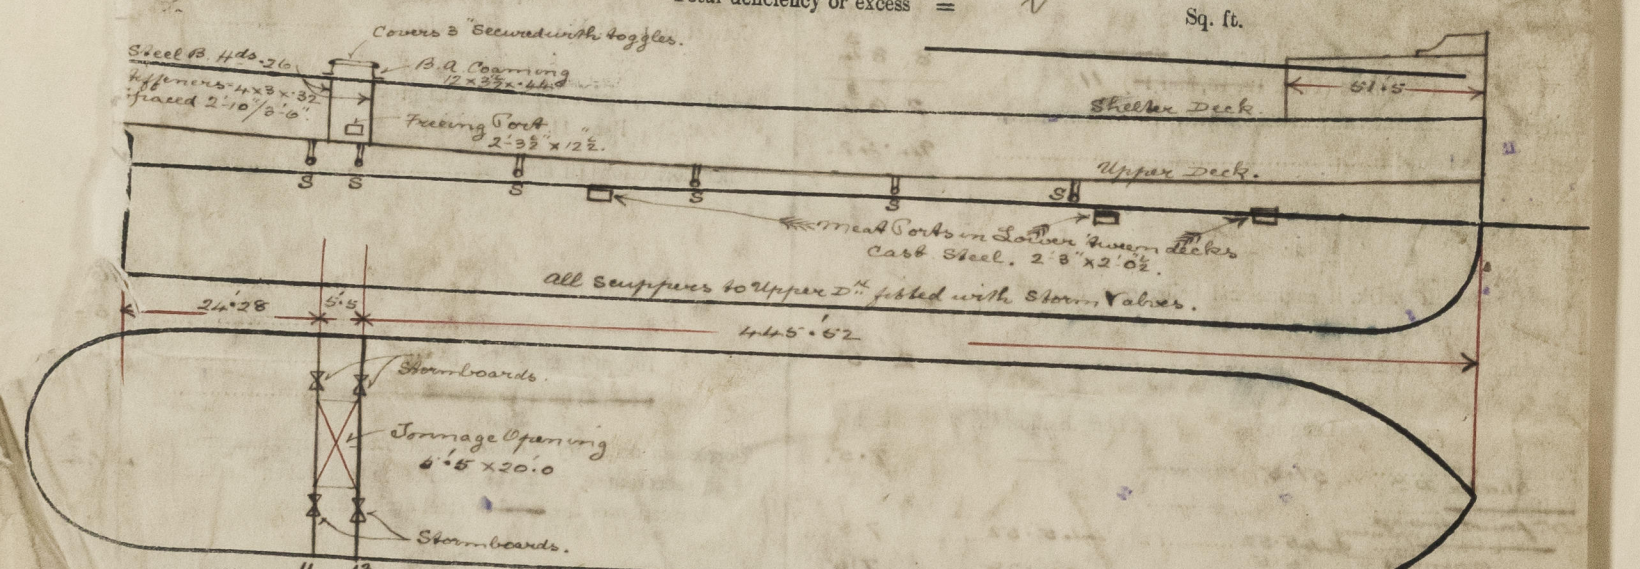 Total deficiency or excess =
Sq. ft.
Covers 3" Secured with toggles.
Steel B. Hds .26
B.A. Coaming
Stiffeners 4 x 3 x .32
spaced 2'-10"/3'-6".
51'.5
Shelter Deck.
Freeing Port
2'-3½" x 12½".
Upper Deck.
S S S S S S
Meat Ports in Lower 'tween decks
Cast Steel. 2'3" x 2'0½".
All Scuppers to Upper Dk fitted with Storm Valves.
24'.28
5'.5
445'.52
Stormboards.
Tonnage Opening
5'.5 x 20'.0
Stormboards.